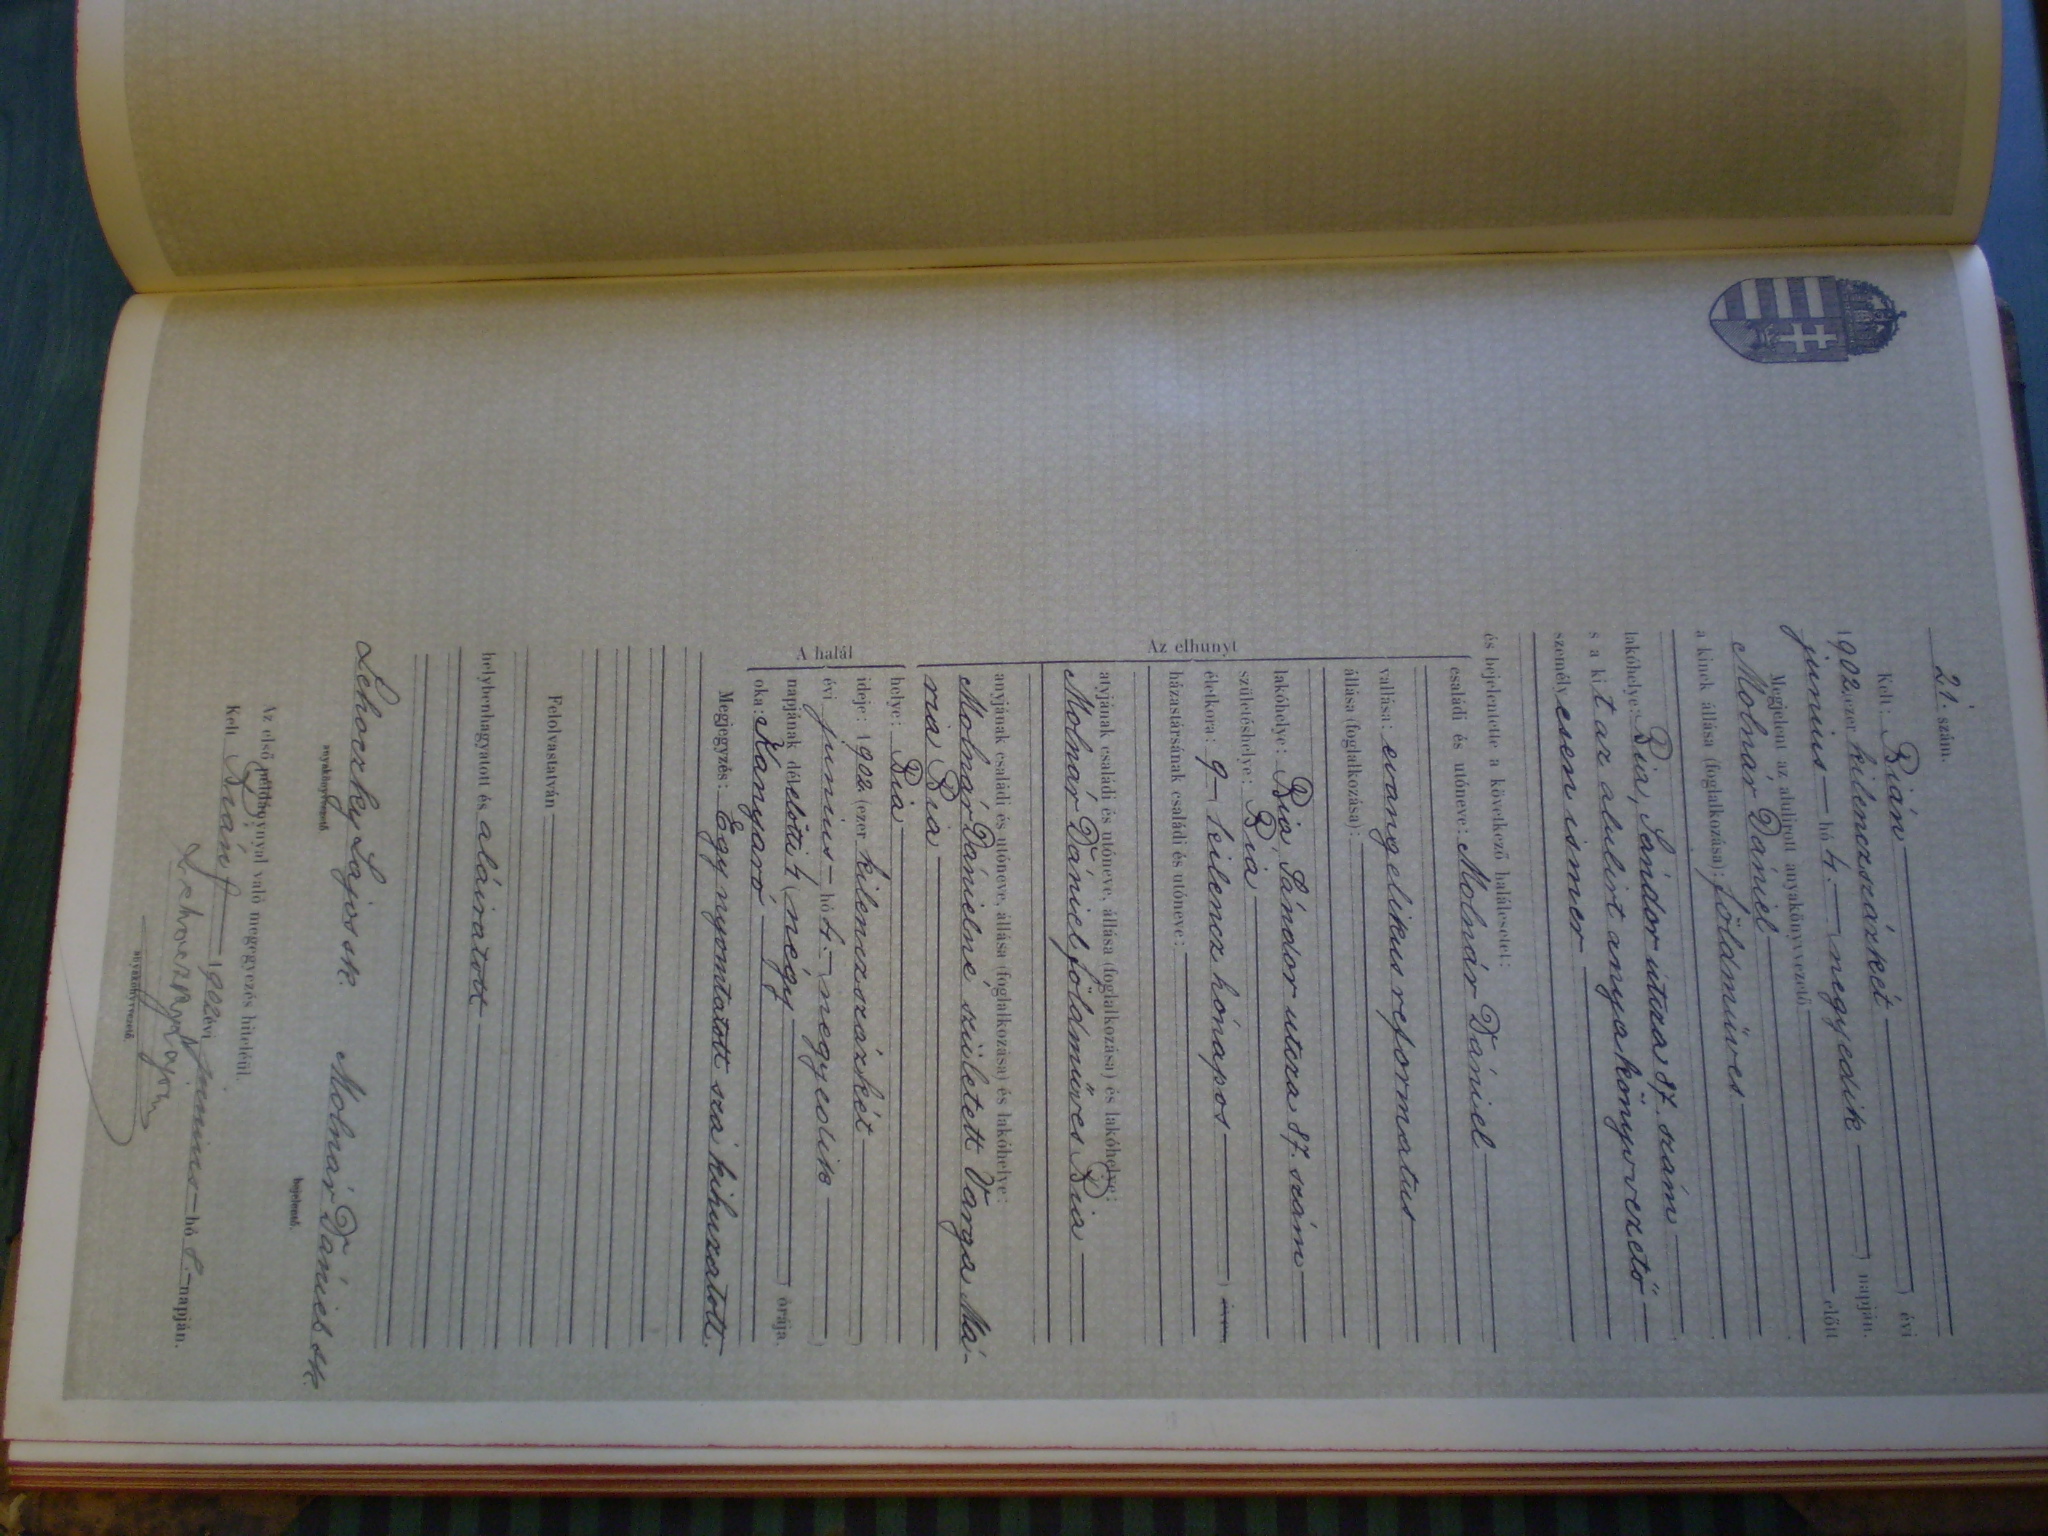 21. szám.
Kelt: Bián
1902 (ezer kilenczszázkét) évi
junius hó 4. (negyedik) napján.
Megjelent az alulirott anyakönyvvezető előtt
Molnár Dániel
a kinek állása (foglalkozása): földmüves
lakóhelye: Bia, Sándor utcza 87. szám
s a kit az alulirt anyakönyvvezető
személyesen ismer
és bejelentette a következő halálesetet:
Az elhunyt
családi és utóneve: Molnár Dániel
vallása: evangelikus reformatus
állása (foglalkozása):
lakóhelye: Bia Sándor utcza 87. szám
születéshelye: Bia
életkora: 9 (kilencz hónapos) éves
házastársának családi és utóneve:
atyjának családi és utóneve, állása (foglalkozása) és lakóhelye:
Molnár Dániel földmüves Bia
anyjának családi és utóneve, állása (foglalkozása) és lakóhelye:
Molnár Dánielné született Varga Má-
ria Bia
A halál
helye: Bia
ideje: 1902 (ezer kilenczszázkét)
évi junius hó 4. (negyedik)
napjának délelötti 4 (négy) órája.
oka: Kanyaró
Megjegyzés: Egy nyomtatott szó kihuzatott.
Felolvastatván
helybenhagyatott és aláiratott
Lehoczky Lajos sk. Molnár Dániel sk.
anyakönyvvezető bejelentő.
Az első példánynyal való megegyezés hiteléül
Kelt Bián 1902 évi junius hó napján.
Lehoczky Lajos
anyakönyvvezető.